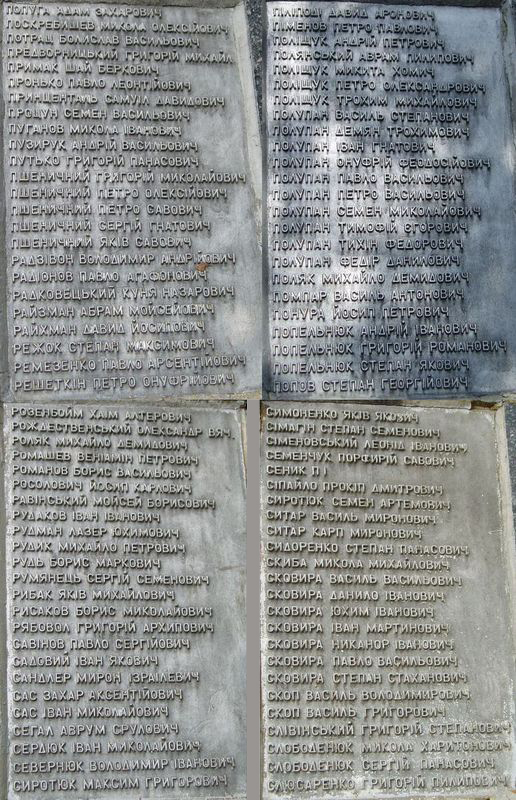 ПОПУГА АДАМ ЗАХАРОВИЧ
ПОСКРЕБИШЕВ МИКОЛА ОЛЕКСІЙОВИЧ
ПОТРАЦ БОЛИСЛАВ ВАСИЛЬОВИЧ
ПРЕДВОРНИЦЬКИЙ ГРИГОРІЙ МИХАЙЛ
ПРИМАК ШАЙ БЕРКОВИЧ
ПРОНЬКО ПАВЛО ЛЕОНТІЙОВИЧ
ПРИНШЕНТАЛЬ САМУІЛ ДАВИДОВИЧ
ПРОЦУН СЕМЕН ВАСИЛЬОВИЧ
ПУГАНОВ МИКОЛА ІВАНОВИЧ
ПУЗИРУК АНДРІЙ ВАСИЛЬОВИЧ
ПУТЬКО ГРИГОРІЙ ПАНАСОВИЧ
ПШЕНИЧНИЙ ГРИГОРІЙ МИКОЛАЙОВИЧ
ПШЕНИЧНИЙ ПЕТРО ОЛЕКСІЙОВИЧ
ПШЕНИЧНИЙ ПЕТРО САВОВИЧ
ПШЕНИЧНИЙ СЕРГІЙ ГНАТОВИЧ
ПШЕНИЧНИЙ ЯКІВ САВОВИЧ
РАДЗІВОН ВОЛОДИМИР АНДРІЙОВИЧ
РАДІОНОВ ПАВЛО АГАФОНОВИЧ
РАДКОВЕЦЬКИЙ КУНЯ НАЗАРОВИЧ
РАЙЗМАН АБРАМ МОЙСЕЙОВИЧ
РАЙХМАН ДАВИД ЙОСИПОВИЧ
РЕЖОК СТЕПАН МАКСИМОВИЧ
РЕМЕЗЕНКО ПАВЛО АРСЕНТІЙОВИЧ
РЕШЕТКІН ПЕТРО ОНУФРІЙОВИЧ
ПІЛІПОДІ ДАВИД АРОНОВИЧ
ПІМЕНОВ ПЕТРО ПАВЛОВИЧ
ПОЛІЩУК АНДРІЙ ПЕТРОВИЧ
ПОЛЯНСЬКИЙ АВРАМ ПИЛИПОВИЧ
ПОЛІЩУК МИКИТА ХОМИЧ
ПОЛІЩУК ПЕТРО ОЛЕКСАНДРОВИЧ
ПОЛІЩУК ТРОХИМ МИХАЙЛОВИЧ
ПОЛУПАН ВАСИЛЬ СТЕПАНОВИЧ
ПОЛУПАН ДЕМЯН ТРОХИМОВИЧ
ПОЛУПАН ІВАН ГНАТОВИЧ
ПОЛУПАН ОНУФРІЙ ФЕОДОСІЙОВИЧ
ПОЛУПАН ПАВЛО ВАСИЛЬОВИЧ
ПОЛУПАН ПЕТРО ВАСИЛЬОВИЧ
ПОЛУПАН СЕМЕН МИКОЛАЙОВИЧ
ПОЛУПАН ТИМОФІЙ ЄГОРОВИЧ
ПОЛУПАН ТИХІН ФЕДОРОВИЧ
ПОЛУПАН ФЕДІР ДАНИЛОВИЧ
ПОЛЯК МИХАЙЛО ДЕМИДОВИЧ
ПОМПАР ВАСИЛЬ АНТОНОВИЧ
ПОНУРА ЙОСИП ПЕТРОВИЧ
ПОПЕЛЬНЮК АНДРІЙ ІВАНОВИЧ
ПОПЕЛЬНЮК ГРИГОРІЙ РОМАНОВИЧ
ПОПЕЛЬНЮК СТЕПАН ЯКОВИЧ
ПОПОВ СТЕПАН ГЕОРГІЙОВИЧ
РОЗЕНБОЙМ ХАІМ АЛТЕРОВИЧ
РОЖДЕСТВЕНСЬКИЙ ОЛЕКСАНДР ВЯЧ.
РОЛЯК МИХАЙЛО ДЕМИДОВИЧ
РОМАШЕВ ВЕНІАМІН ПЕТРОВИЧ
РОМАНОВ БОРИС ВАСИЛЬОВИЧ
РОСОЛОВИЧ ЙОСИП КАРЛОВИЧ
РАВІНСЬКИЙ МОЙСЕЙ БОРИСОВИЧ
РУДАКОВ ІВАН ІВАНОВИЧ
РУДМАН ЛАЗЕР ЮХИМОВИЧ
РУДИК МИХАЙЛО ПЕТРОВИЧ
РУДЬ БОРИС МАРКОВИЧ
РУМЯНЕЦЬ СЕРГІЙ СЕМЕНОВИЧ
РИБАК ЯКІВ МИХАЙЛОВИЧ
РИСАКОВ БОРИС МИКОЛАЙОВИЧ
РЯБОВОЛ ГРИГОРІЙ АРХИПОВИЧ
САВІНОВ ПАВЛО СЕРГІЙОВИЧ
САДОВИЙ ІВАН ЯКОВИЧ
САНДЛЕР МИРОН ІЗРАІЛЕВИЧ
САС ЗАХАР АКСЕНТІЙОВИЧ
САС ІВАН МИКОЛАЙОВИЧ
СЕГАЛ АВРУМ СРУЛОВИЧ
СЕРДЮК ІВАН МИКОЛАЙОВИЧ
СЕВЕРНЮК ВОЛОДИМИР ІВАНОВИЧ
СИРОТЮК МАКСИМ ГРИГОРОВИЧ
СИМОНЕНКО ЯКІВ ЯКОВИЧ
СІМАГІН СТЕПАН СЕМЕНОВИЧ
СІМЕНОВСЬКИЙ ЛЕОНІД ІВАНОВИЧ
СЕМЕНЧУК ПОРФИРІЙ САВОВИЧ
СЕНИК П І
СІПАЙЛО ПРОКІП ДМИТРОВИЧ
СИРОТЮК СЕМЕН АРТЕМОВИЧ
СИТАР ВАСИЛЬ МИРОНОВИЧ
СИТАР КАРП МИРОНОВИЧ
СИДОРЕНКО СТЕПАН ПАНАСОВИЧ
СКИБА МИКОЛА МИХАЙЛОВИЧ
СКОВИРА ВАСИЛЬ ВАСИЛЬОВИЧ
СКОВИРА ДАНИЛО ІВАНОВИЧ
СКОВИРА ЮХИМ ІВАНОВИЧ
СКОВИРА ІВАН МАРТИНОВИЧ
СКОВИРА НИКАНОР ІВАНОВИЧ
СКОВИРА ПАВЛО ВАСИЛЬОВИЧ
СКОВИРА СТЕПАН СТАХАНОВИЧ
СКОП ВАСИЛЬ ВОЛОДИМИРОВИЧ
СКОП ВАСИЛЬ ГРИГОРОВИЧ
СЛІВІНСЬКИЙ ГРИГОРІЙ СТЕПАНОВИЧ
СЛОБОДЕНЮК МИКОЛА ХАРИТОНОВИЧ
СЛОБОДЕНЮК СЕРГІЙ ПАНАСОВИЧ
СЛЮСАРЕНКО ГРИГОРІЙ ПИЛИПОВИЧ